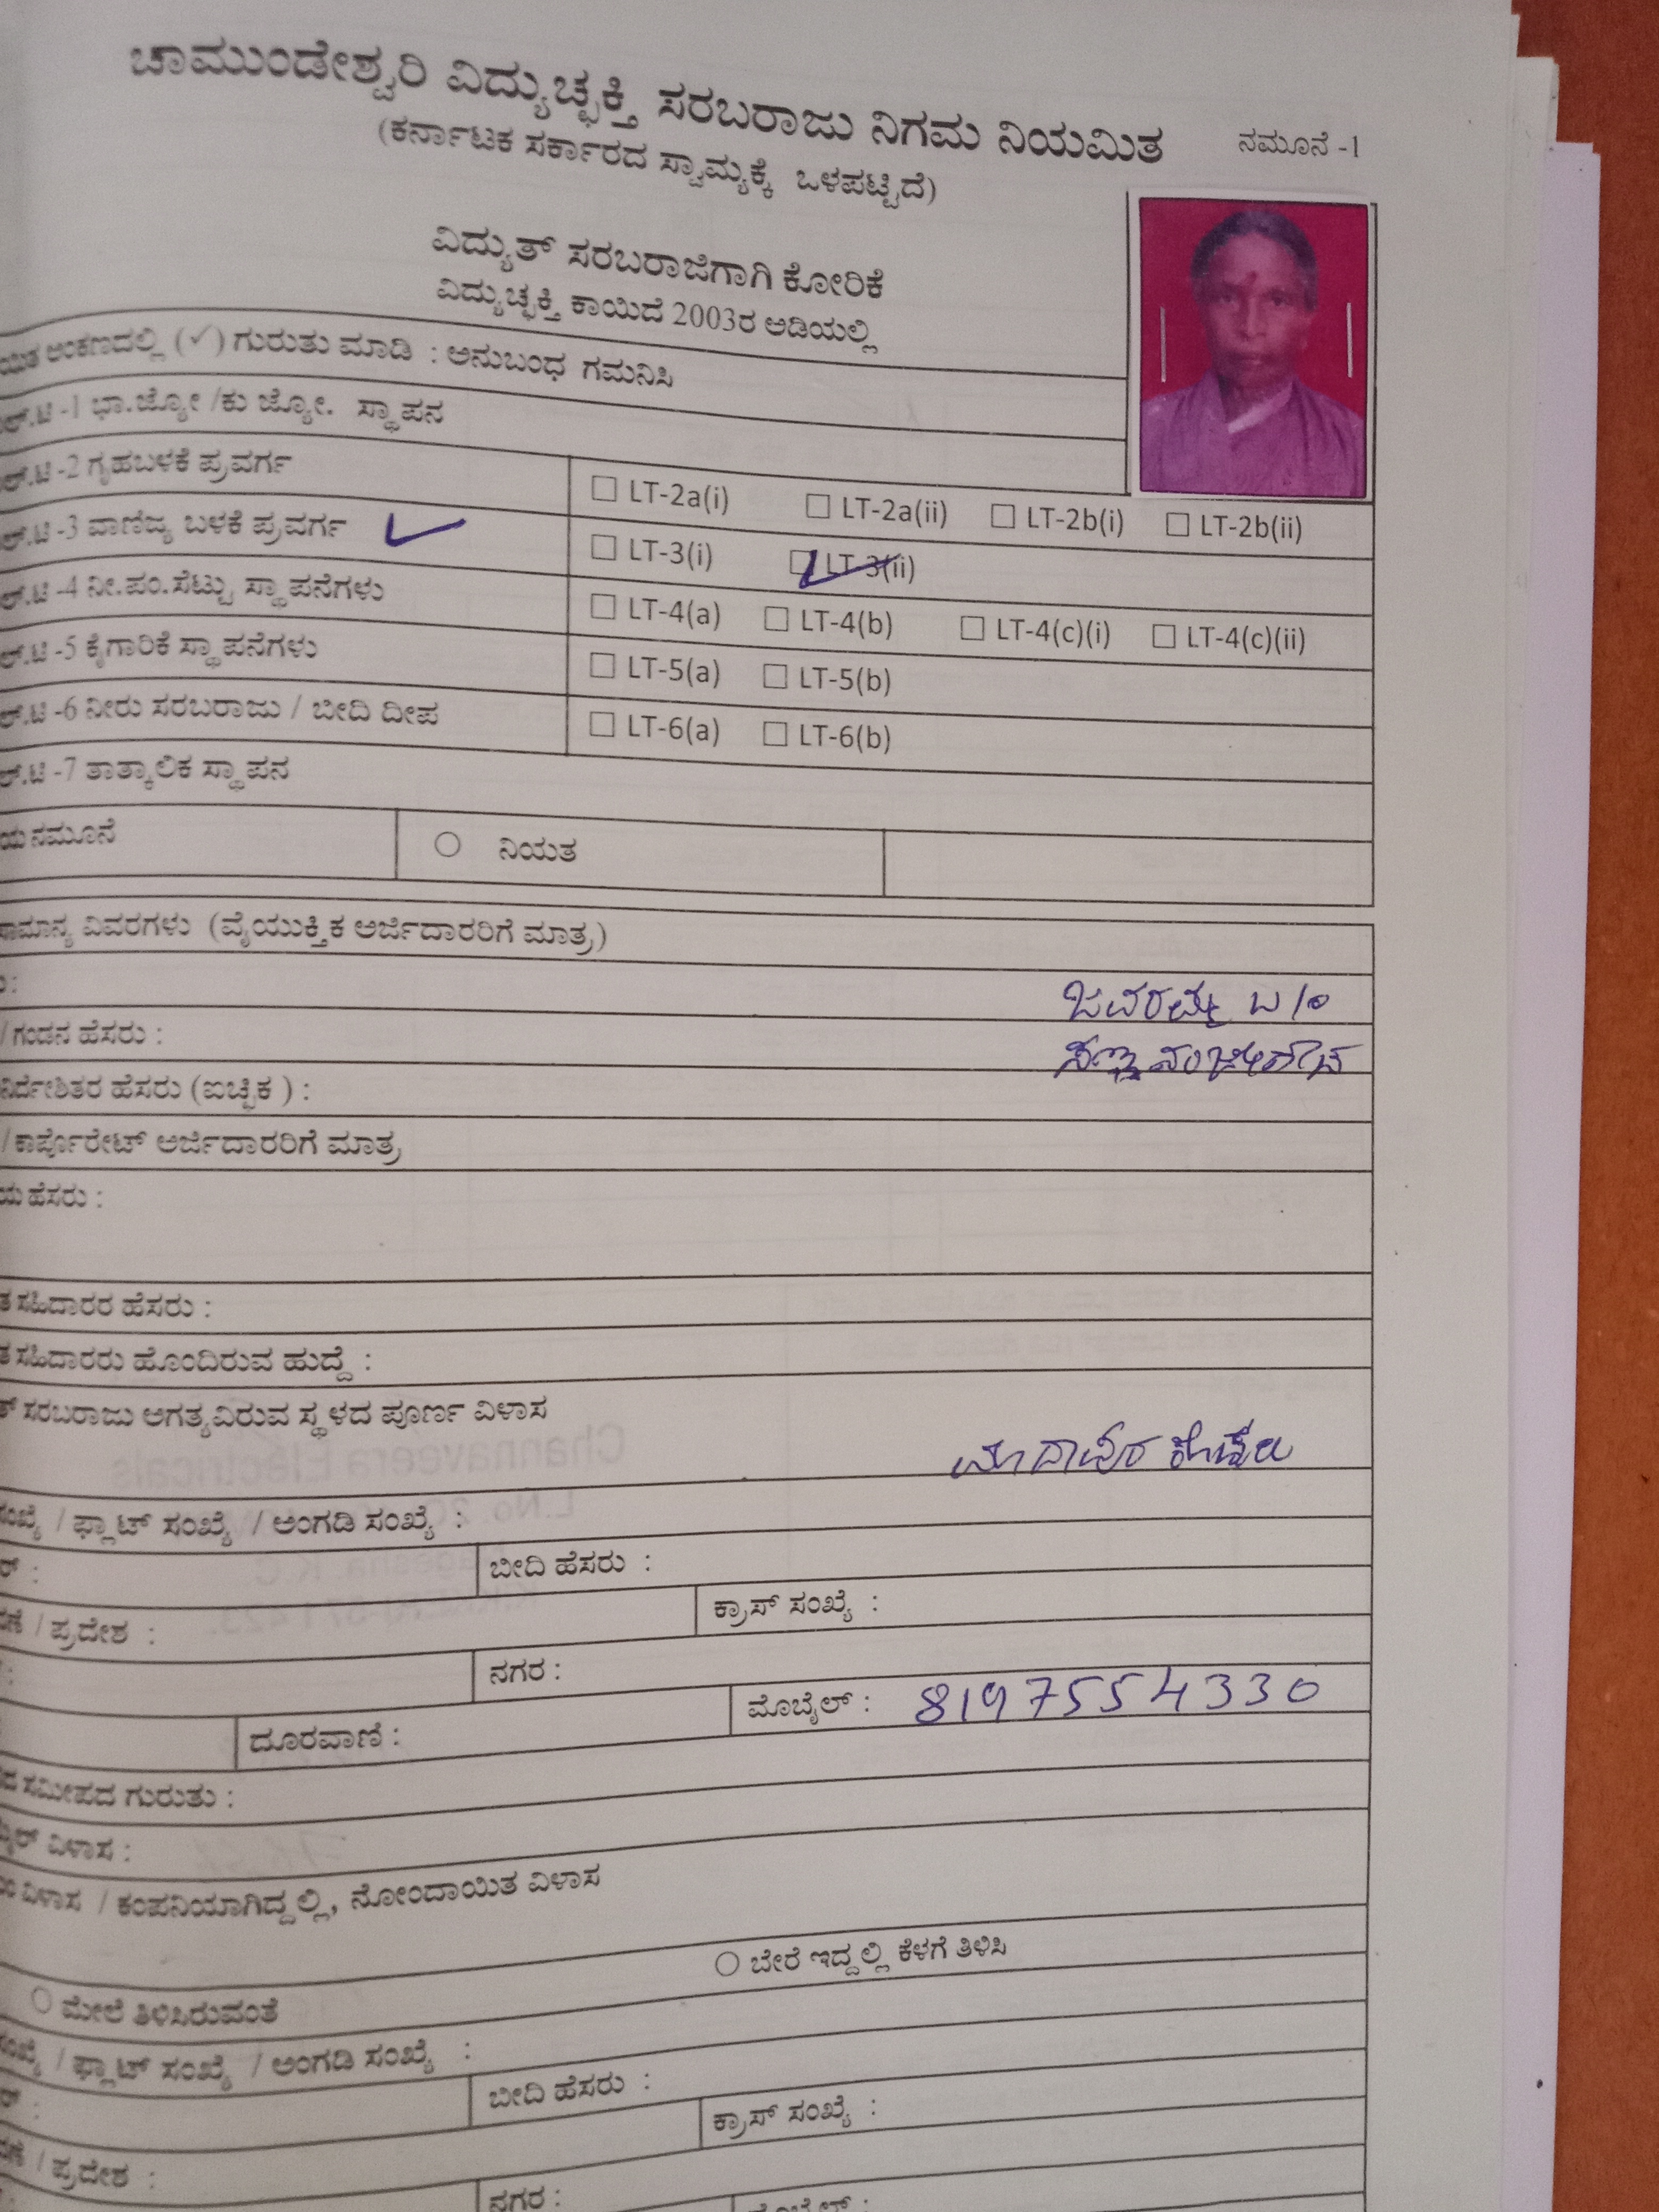 ಚಾಮುಂಡೇಶ್ವರಿ ವಿದ್ಯುಚ್ಛಕ್ತಿ ಸರಬರಾಜು ನಿಗಮ ನಿಯಮಿತ
ನಮೂನೆ -1
(ಕರ್ನಾಟಕ ಸರ್ಕಾರದ ಸ್ವಾಮ್ಯಕ್ಕೆ ಒಳಪಟ್ಟಿದೆ)
ವಿದ್ಯುತ್ ಸರಬರಾಜಿಗಾಗಿ ಕೋರಿಕೆ
ವಿದ್ಯುಚ್ಛಕ್ತಿ ಕಾಯಿದೆ 2003ರ ಅಡಿಯಲ್ಲಿ
ಅಂಕಣದಲ್ಲಿ (✓) ಗುರುತು ಮಾಡಿ : ಅನುಬಂಧ ಗಮನಿಸಿ
ಲ್.ಟಿ -1 ಭಾ.ಜ್ಯೋ /ಕು ಜ್ಯೋ. ಸ್ಥಾಪನ
ಲ್.ಟಿ -2 ಗೃಹಬಳಕೆ ಪ್ರವರ್ಗ ☐ LT-2a(i) ☐ LT-2a(ii) ☐ LT-2b(i) ☐ LT-2b(ii)
ಲ್.ಟಿ -3 ವಾಣಿಜ್ಯ ಬಳಕೆ ಪ್ರವರ್ಗ ✓ ☐ LT-3(i) ☑ LT-3(ii)
ಲ್.ಟಿ -4 ನೀ.ಪಂ.ಸೆಟ್ಟು ಸ್ಥಾಪನೆಗಳು ☐ LT-4(a) ☐ LT-4(b) ☐ LT-4(c)(i) ☐ LT-4(c)(ii)
ಲ್.ಟಿ -5 ಕೈಗಾರಿಕೆ ಸ್ಥಾಪನೆಗಳು ☐ LT-5(a) ☐ LT-5(b)
ಲ್.ಟಿ -6 ನೀರು ಸರಬರಾಜು / ಬೀದಿ ದೀಪ ☐ LT-6(a) ☐ LT-6(b)
ಲ್.ಟಿ -7 ತಾತ್ಕಾಲಿಕ ಸ್ಥಾಪನ
ಯ ನಮೂನೆ ○ ನಿಯತ
ಸಾಮಾನ್ಯ ವಿವರಗಳು (ವೈಯುಕ್ತಿಕ ಅರ್ಜಿದಾರರಿಗೆ ಮಾತ್ರ)
: ಜವರಮ್ಮ
/ ಗಂಡನ ಹೆಸರು :
ನಿರ್ದೇಶಿತರ ಹೆಸರು (ಐಚ್ಛಿಕ ) :
/ ಕಾರ್ಪೊರೇಟ್ ಅರ್ಜಿದಾರರಿಗೆ ಮಾತ್ರ
ಯ ಹೆಸರು :
ತ ಸಹಿದಾರರ ಹೆಸರು :
ತ ಸಹಿದಾರರು ಹೊಂದಿರುವ ಹುದ್ದೆ :
ತ್ ಸರಬರಾಜು ಅಗತ್ಯವಿರುವ ಸ್ಥಳದ ಪೂರ್ಣ ವಿಳಾಸ
ಸಂಖ್ಯೆ / ಫ್ಲಾಟ್ ಸಂಖ್ಯೆ / ಅಂಗಡಿ ಸಂಖ್ಯೆ :
ರ್ : ಬೀದಿ ಹೆಸರು :
ಣೆ / ಪ್ರದೇಶ : ಕ್ರಾಸ್ ಸಂಖ್ಯೆ :
: ನಗರ :
ದೂರವಾಣಿ : ಮೊಬೈಲ್ : 8197554330
ದ ಸಮೀಪದ ಗುರುತು :
ವಿಳಾಸ :
ವಿಳಾಸ / ಕಂಪನಿಯಾಗಿದ್ದಲ್ಲಿ, ನೋಂದಾಯಿತ ವಿಳಾಸ
○ ಮೇಲೆ ತಿಳಿಸಿರುವಂತೆ ○ ಬೇರೆ ಇದ್ದಲ್ಲಿ ಕೆಳಗೆ ತಿಳಿಸಿ
ಸಂಖ್ಯೆ / ಫ್ಲಾಟ್ ಸಂಖ್ಯೆ / ಅಂಗಡಿ ಸಂಖ್ಯೆ :
ರ್ : ಬೀದಿ ಹೆಸರು :
ಣೆ / ಪ್ರದೇಶ : ಕ್ರಾಸ್ ಸಂಖ್ಯೆ :
ನಗರ : ಮೊಬೈಲ್ :